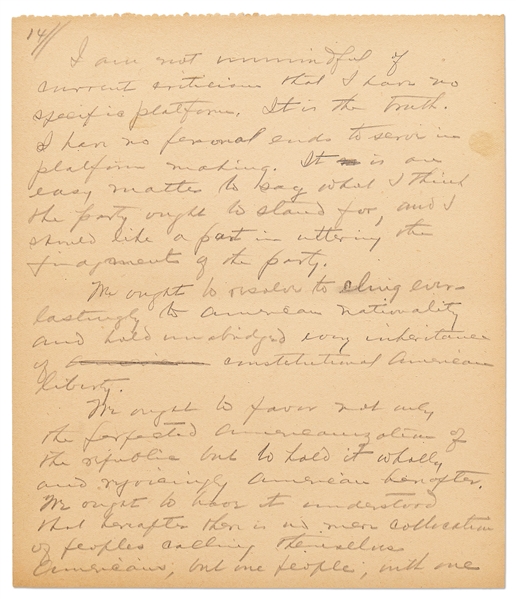 14//
I am not unmindful of
current criticism that I have no
specific platform. It is the truth.
I have no personal ends to serve in
platform making. It is an
easy matter to say what I think
the party ought to stand for, and I
should like a part in uttering the
judgments of the party.
We ought to resolve to cling ever-
lastingly to American nationality
and hold unabridged every inheritance
of American constitutional American
liberty.
We ought to favor not only
the perfected Americanization of
the republic but to hold it wholly
and rejoicingly American hereafter.
We ought to have it understood
that hereafter there is no mere collocation
of peoples calling themselves
Americans, but one people, with one